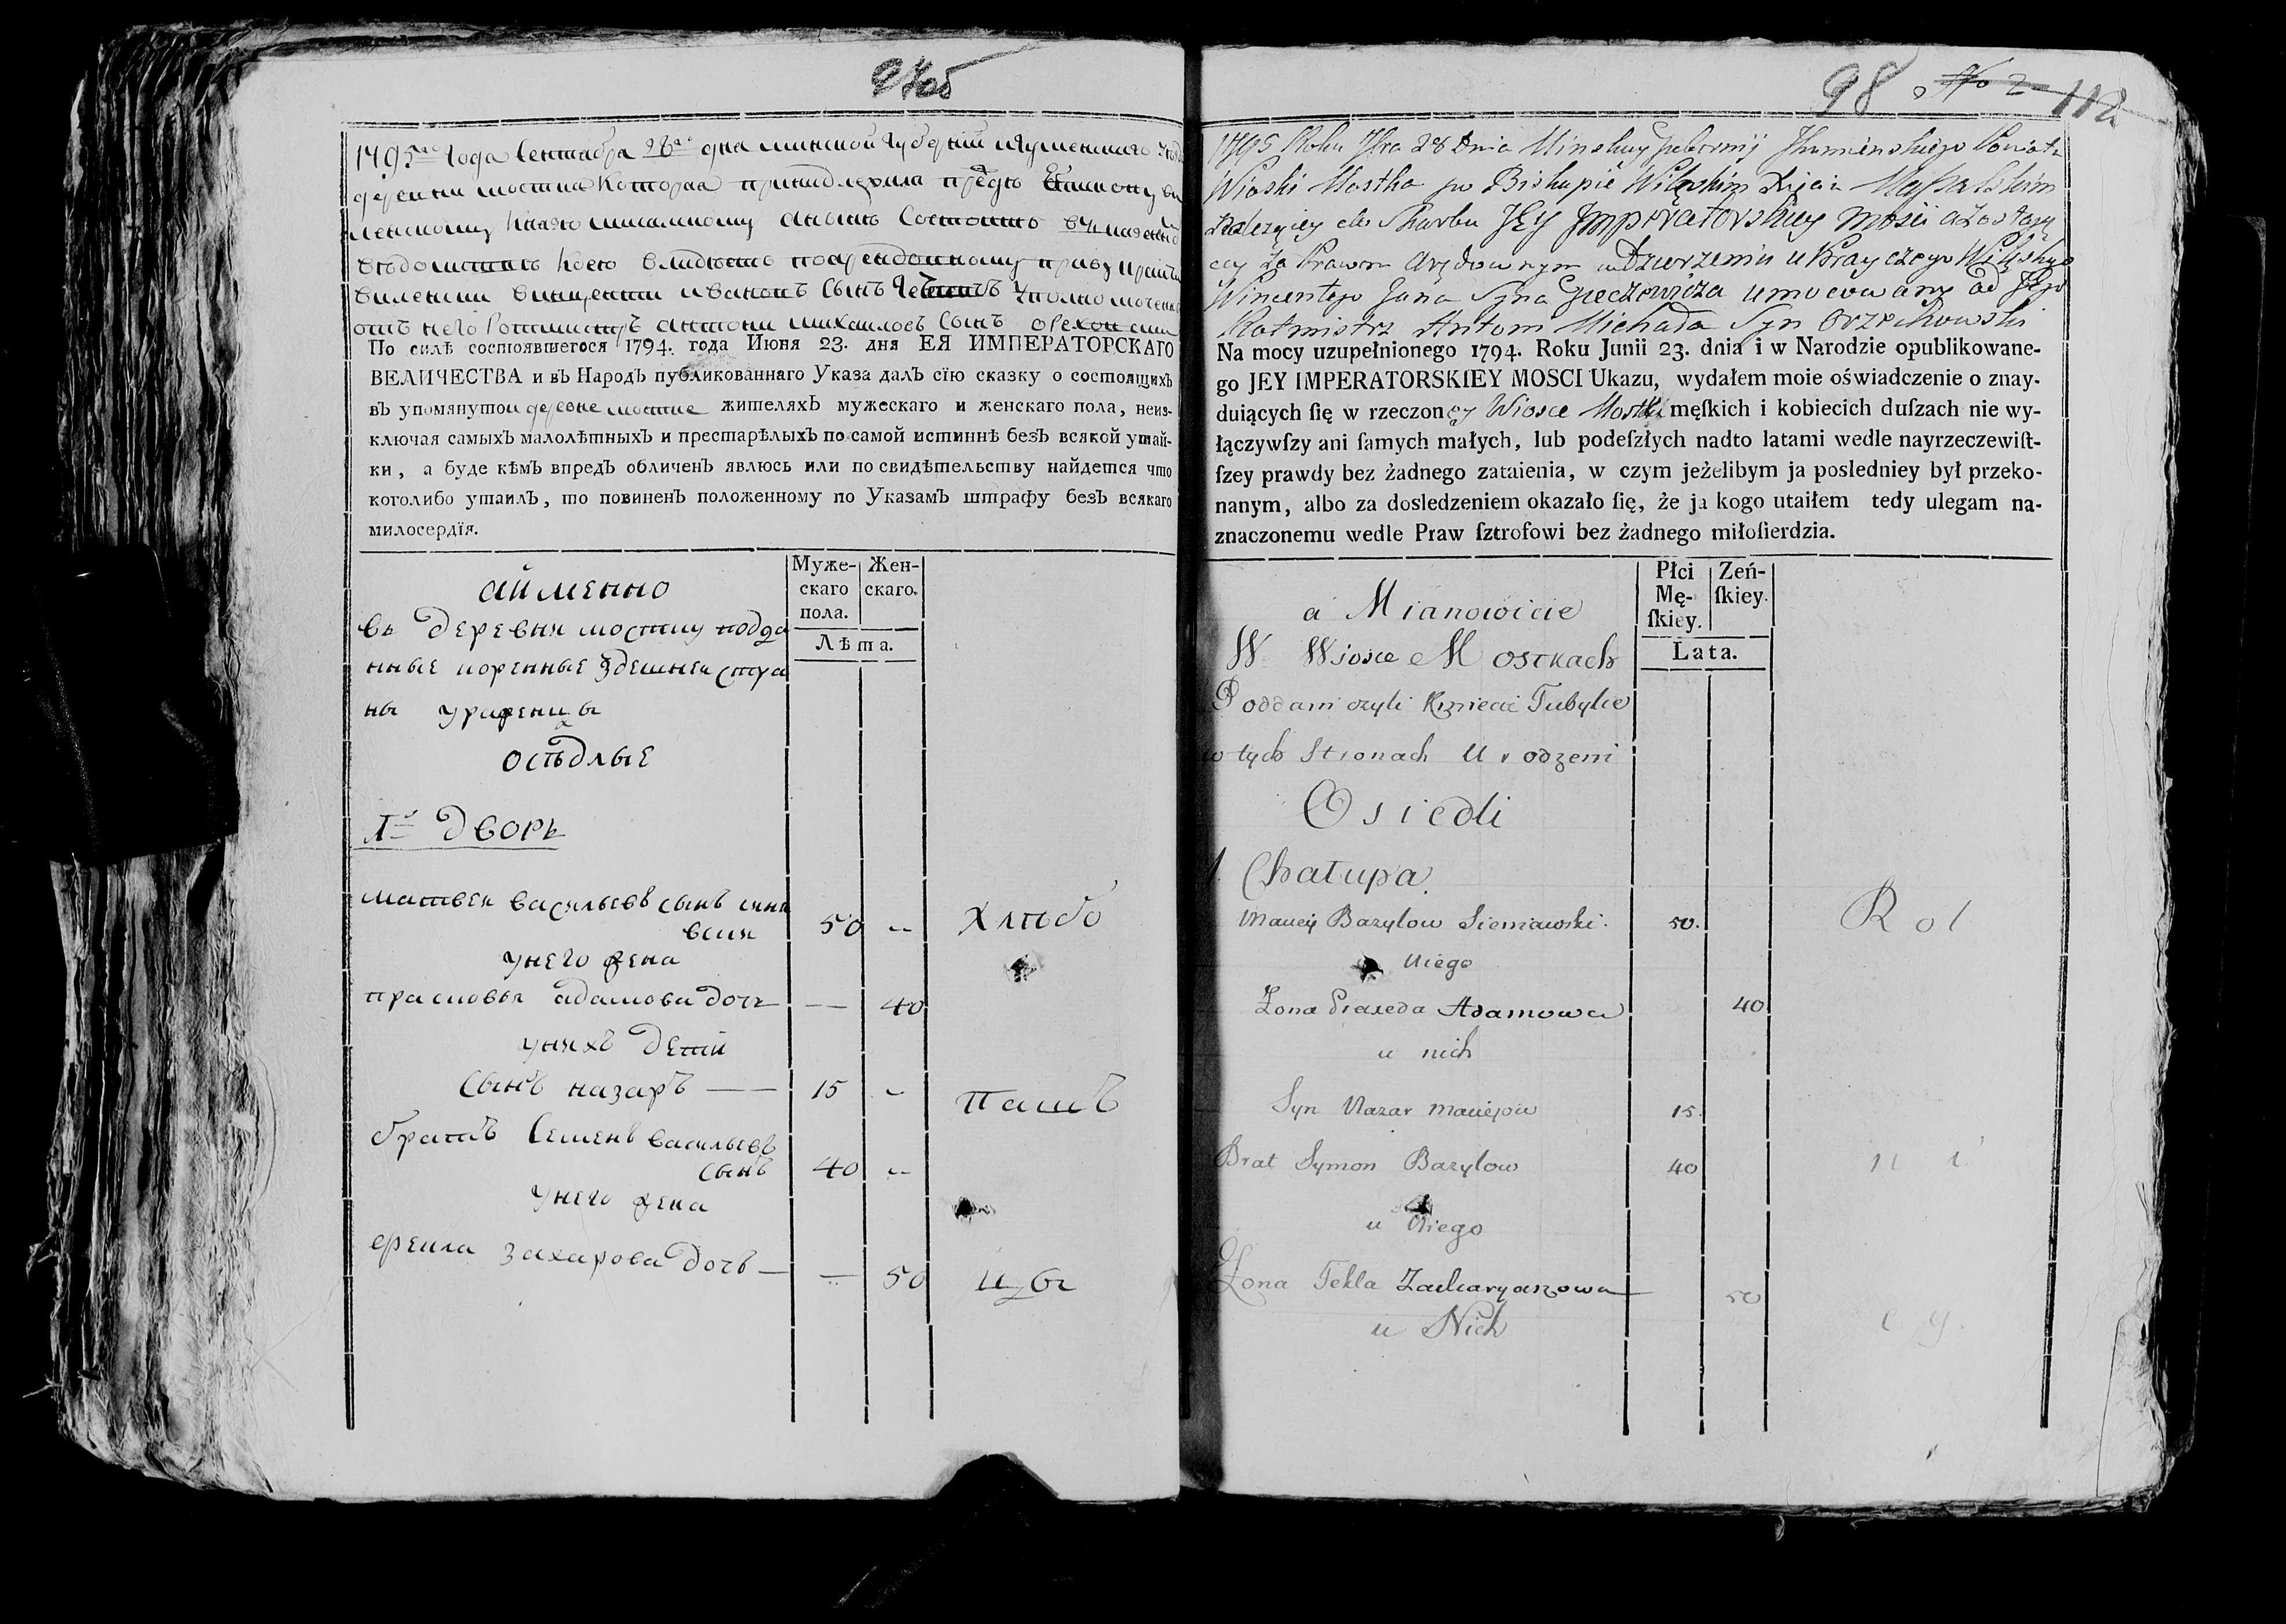 97об
1795го Года Сентабра 28го дна минской Губерніи игуменского
деревни мостка Котораа принадлежала предю
леискому Князю
По силѣ состоявшегося 1794. года Июня 23. дня ЕЯ ИМПЕРАТОРСКАГО
ВЕЛИЧЕСТВА и въ НародЪ публикованнаго Указа далЪ сїю сказку о состоящихЪ
въ упомянутои деревне мостке жителяхЪ мужескаго и женскаго пола, неиз-
ключая самыхЪ малолѣтныхЪ и престарѣлыхЪ по самой истиннѣ безЪ всякой утай-
ки, а буде кѣмЪ впредЪ обличенЪ явлюсь или по свидѣтельству найдется что
коголибо утаилЪ, то повиненЪ положенному по УказамЪ штрафу безЪ всякаго
милосердїя.
Муже-
скаго
пола.
Жен-
скаго.
Лѣта.
аименно
вь деревни мостку подда
нные коренные здешнеи стра
ны уроженцы
осѣдлые
1й дворь
матвеи васильевъ сынъ
50 -- хлѣбо
унего жена
прасковья адамова дочь — — 40
унихъ дети
сынъ назаръ — 15 - пашъ
братъ Семенъ васильевъ
сынъ 40 --
унего жена
захарова дочь — — 50 цы
98 No 2 112
1795 Roku 7bra 28 Dnia Minskiey Gubernij Ihumienskiego Powiatu
Wioski Mostka po Biskupie Wileńskim Xięciu Massalskim
należącey do Skarbu JEy Imperatorskiey Mości a zostaią
cey za Prawem Arędownym w Dzierżeniu u
Wincentego Jana Syna umocowany od Jego
Rotmistrz Antoni Michała Syn Orzechowski
Na mocy uzupełnionego 1794. Roku Junii 23. dnia i w Narodzie opublikowane-
go JEY IMPERATORSKIEY MOSCI Ukazu, wydałem moie oświadczenie o znay-
duiących ſię w rzeczoney Wiosce Mostku męſkich i kobiecich duſzach nie wy-
łączywſzy ani ſamych małych, lub podeſzłych nadto latami wedle nayrzeczewiſt-
ſzey prawdy bez żadnego zataienia, w czym jeżelibym ja posledniey był przeko-
nanym, albo za dosledzeniem okazało ſię, że ja kogo utaiłem tedy ulegam na-
znaczonemu wedle Praw ſztrofowi bez żadnego miłoſierdzia.
Płci
Mę-
ſkiey.
Zeń-
ſkiey.
Lata.
a Mianowicie
W Wiosce Mostkach
Poddani czyli Kmiecie Tubylce
w tych Stronach Urodzeni
Osiedli
1. Chałupa.
Maciey Bazylow Sieniawski. 50. Rol
u niego
Żona Praxeda Adamowa 40
u nich
Syn Nazar Maciejow 15.
Brat Symon Bazylow 40 ni
u Niego
Żona Tekla Zacharyaszowa 50 cy.
u Nich